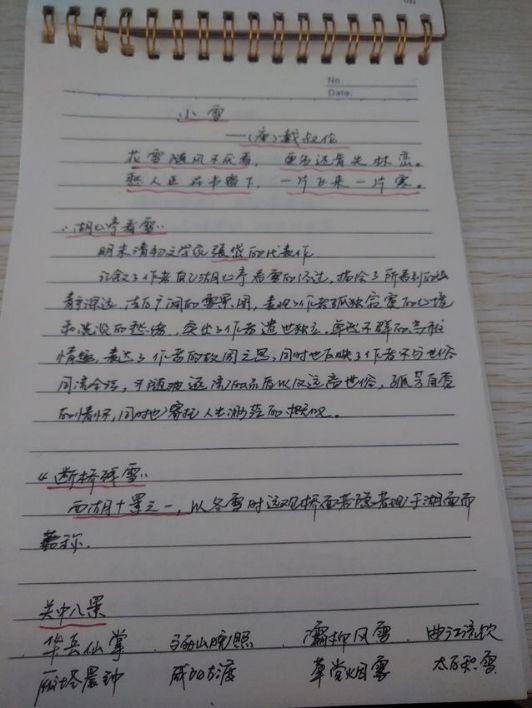 No.
Date:
小雪
——(唐)戴叔伦
花雪随风不厌看,更多还肯失林峦。
愁人正在书窗下,一片飞来一片寒。
湖心亭看雪
明末清初文学家张岱的代表作
记叙了作者自己湖心亭看雪的经过,描绘了所看到的幽
静深远、洁白广阔的雪景图,表现了作者孤独寂寞的心境
和淡淡的愁绪,突出了作者遗世独立、卓然不群的高雅
情趣,表达了作者的故国之思,同时也反映了作者不与世俗
同流合污,不随波逐流的品质以及远离世俗,孤芳自赏
的情怀,同时也寄托人生渺茫的慨叹。
断桥残雪
西湖十景之一,以冬雪时远观桥面若隐若现于湖面而
著称.
关中八景
华岳仙掌 骊山晚照 灞柳风雪 曲江流饮
雁塔晨钟 咸阳古渡 草堂烟雾 太白积雪